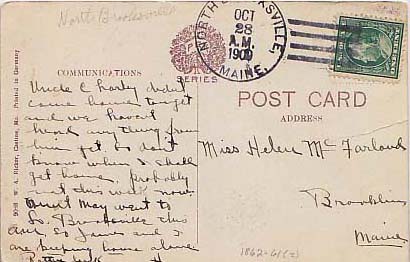 North Brooksville
NORTH BROOKSVILLE,
OCT
28
A.M.
1909
MAINE.
COMMUNICATIONS
SERIES
POST CARD
ADDRESS
Uncle Charley didn't
come home to get
and we haven't
heard any thing from
him yet so don't
know when I shall
get home, probably
not this week now.
Aunt May went to
So. Brooksville this
and I
are keeping house alone
Miss Helen McFarland
Brooklin
Maine
W. A. Ricker, Castine, Me. Printed in Germany